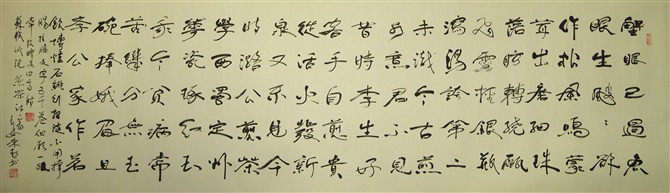 蟹眼已過魚
眼生颼〻欲
作松風鳴蒙
茸出磨細珠
落眩轉繞甌
飛雪輕銀瓶
瀉湯誇第二
未識古人煎
水意君不見
昔時李生好
客手自煎貴
從活火發新
泉又不見今
時潞公煎茶
學西蜀定州
花瓷琢紅玉
我今貧病常
苦飢分無玉
碗捧娥眉且
學公家作茗
飲塼爐石銚行相隨不用撐
腸拄腹文字五千卷但願一甌
常及睡足日高時
蘇軾試院煎茶詩